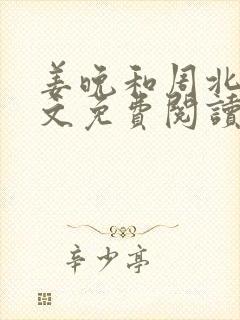 姜晚和周北
文免費閱讀
辛少亭